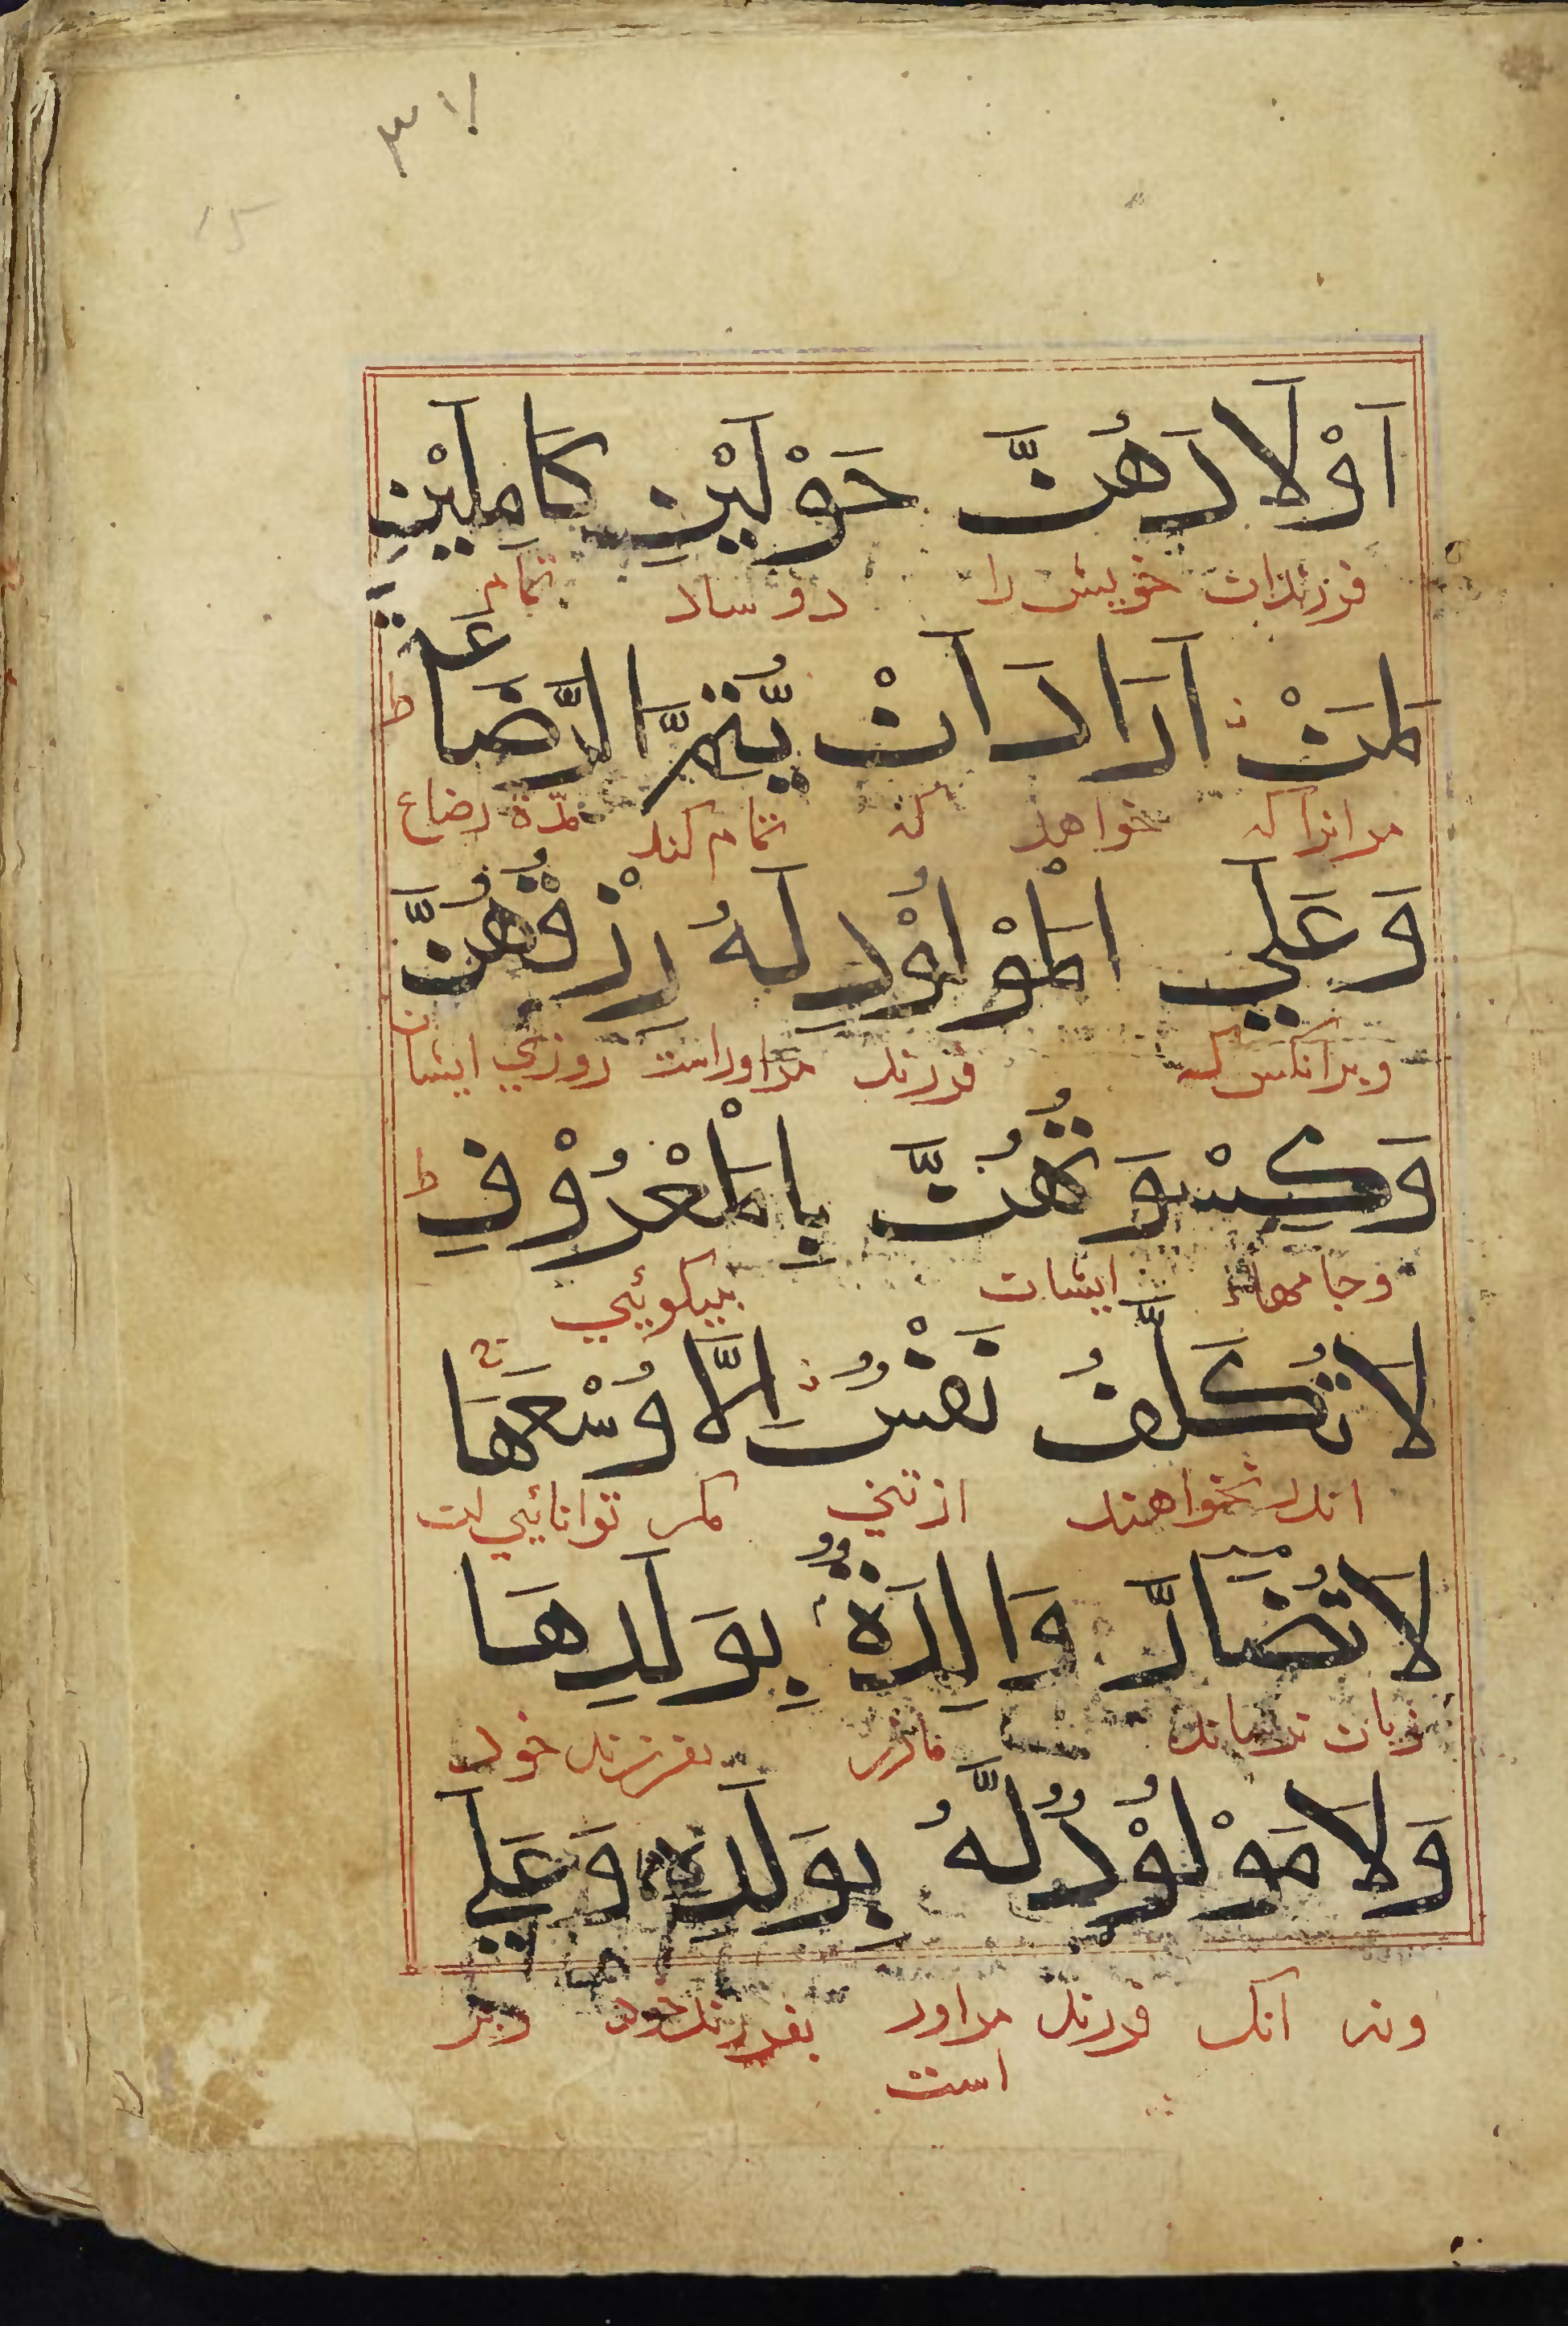 ٣١
15
اَوْلَادَهُنَّ حَوْلَيْنِ كَامِلَيْنِ
فرزندان خویش را دو سال تمام
لِمَنْ اَرَادَ اَنْ يُّتِمَّ الرَّضَاعَةَ ط
مر انرا که خواهد که تمام کند مدّة رضاع
وَعَلَي الْمَوْلُوْدِ لَهُ رِزْقُهُنَّ
وبرانکس که فرزند مراوراست روزي ایشان
وَكِسْوَتُهُنَّ بِالْمَعْرُوْفِ ط
وجامهاء ایشان بنیکوئیي
لَا تُكَلَّفُ نَفْسٌ اِلَّا وُسْعَهَا ج
اندر نخواهند از تني مكر توانائیي
لَا تُضَارَّ وَالِدَةٌ بِوَلَدِهَا
زیان نرساند مادر بفرزند خود
وَلَا مَوْلُوْدٌ لَّهُ بِوَلَدِهٖ وَعَلَي
ونه انک فرزند مراورا بفرزند خود وبر
است